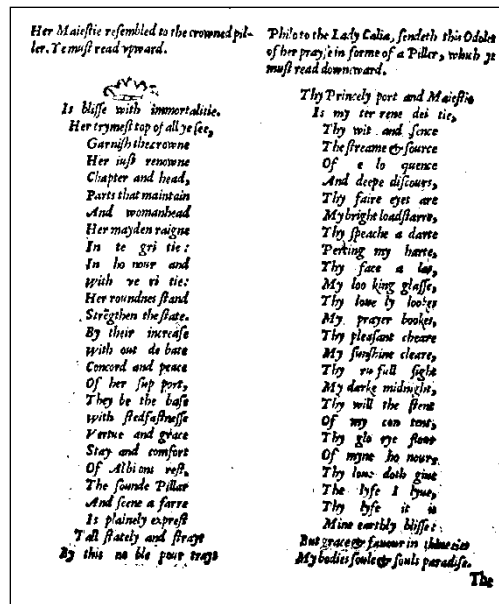 Her Maiestie resembled to the crowned pil-
ler. Ye must read vpward.
Is blisse with immortalitie.
Her trymest top of all ye see,
Garnish the crowne
Her iust renowne
Chapter and head,
Parts that maintain
And womanhead
Her mayden raigne
In te gri tie:
In ho nour and
With ve ri tie:
Her roundnes stand
Strēgthen the state.
By their increase
With out de bate
Concord and peace
Of her sup port,
They be the base
With stedfastnesse
Vertue and grace
Stay and comfort
Of Albi ons rest,
The sounde Pillar
And seene a farre
Is plainely exprest
Tall stately and strayt
By this no ble pour trayt
Philo to the Lady Calia, sendeth this Odolet
of her prayse in forme of a Piller, which ye
must read downeward.
Thy Princely port and Maiestie
Is my ter rene dei tie,
Thy wit and sence
The streame & source
Of e lo quence
And deepe discours,
Thy faire eyes are
My bright loadstarre,
Thy speache a darte
Percing my harte,
Thy face a las,
My loo king glasse,
Thy loue ly lookes
My prayer bookes,
Thy pleasant cheare
My sunshine cleare,
Thy ru full sight
My darke midnight,
Thy will the stent
Of my con tent,
Thy glo rye flour
Of myne ho nour,
Thy loue doth giue
The lyfe I lyue,
Thy lyfe it is
Mine earthly blisse:
But grace & fauour in thine eies
My bodies soule & souls paradise.
The